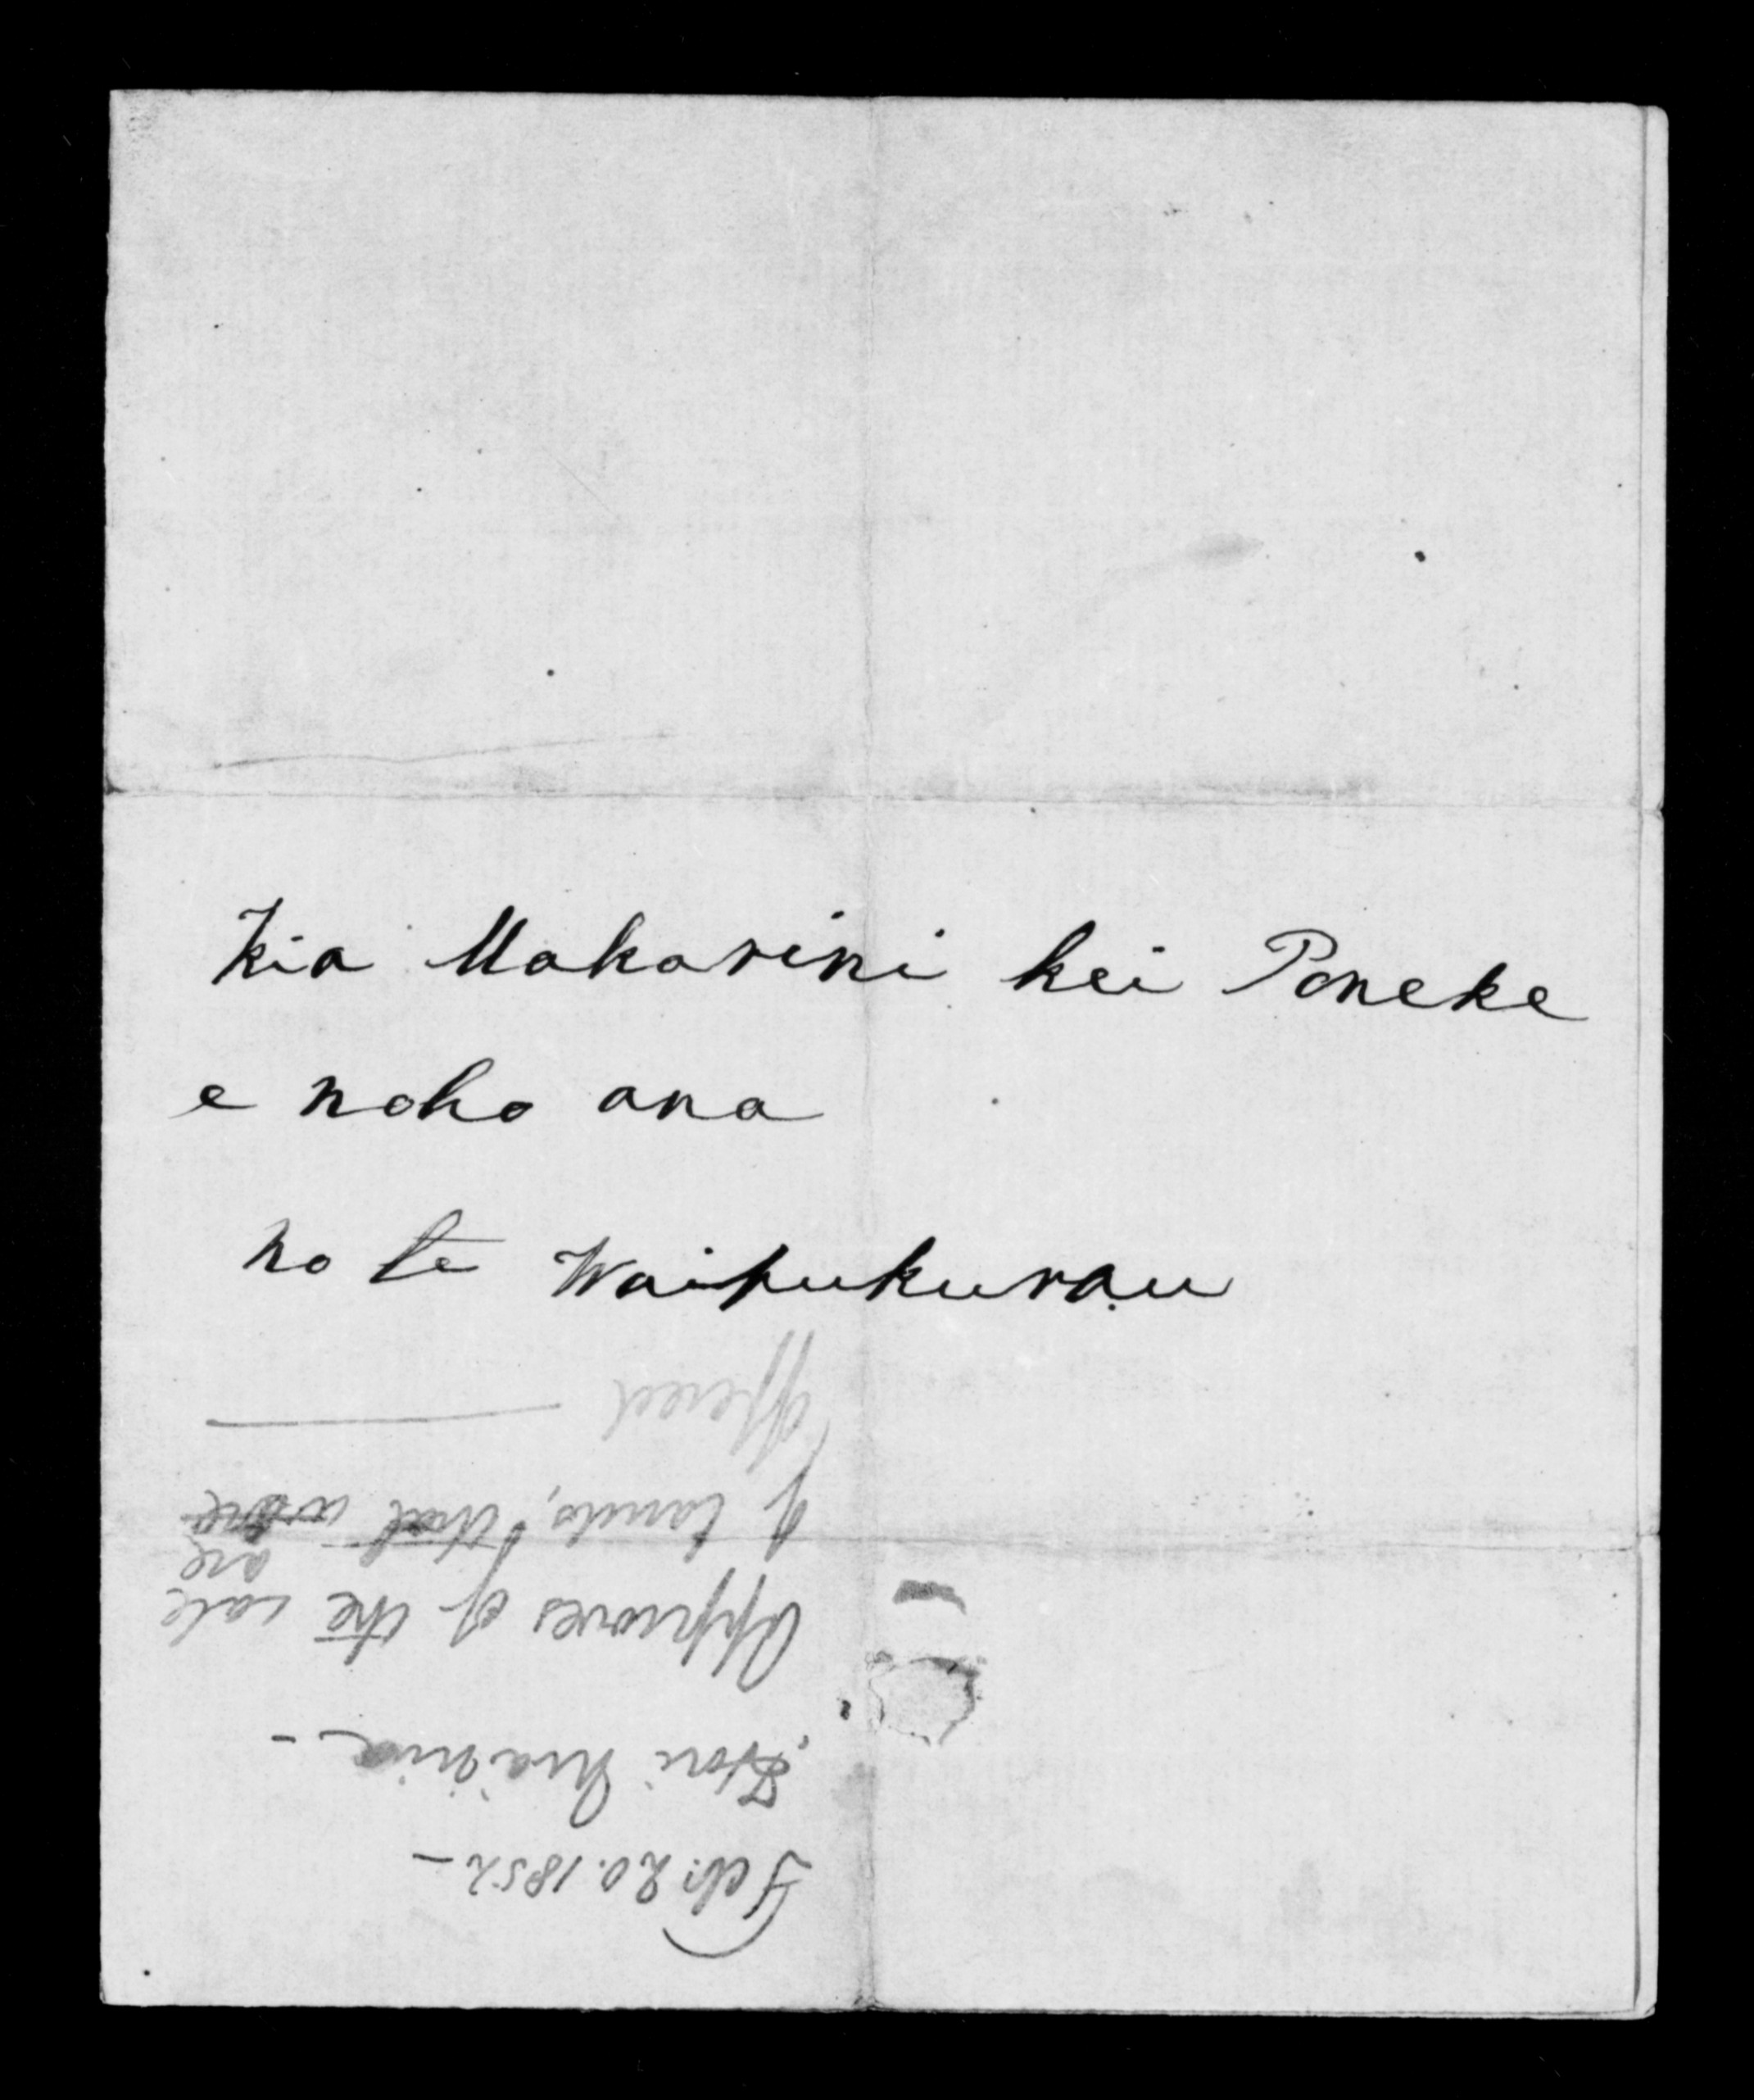 Kia Makarini kei Poneke
e noho ana
no te Waipukurau
Feb: 20. 1852 –
Hori Niania –
Approves of the sale
of lands, that were are
offered